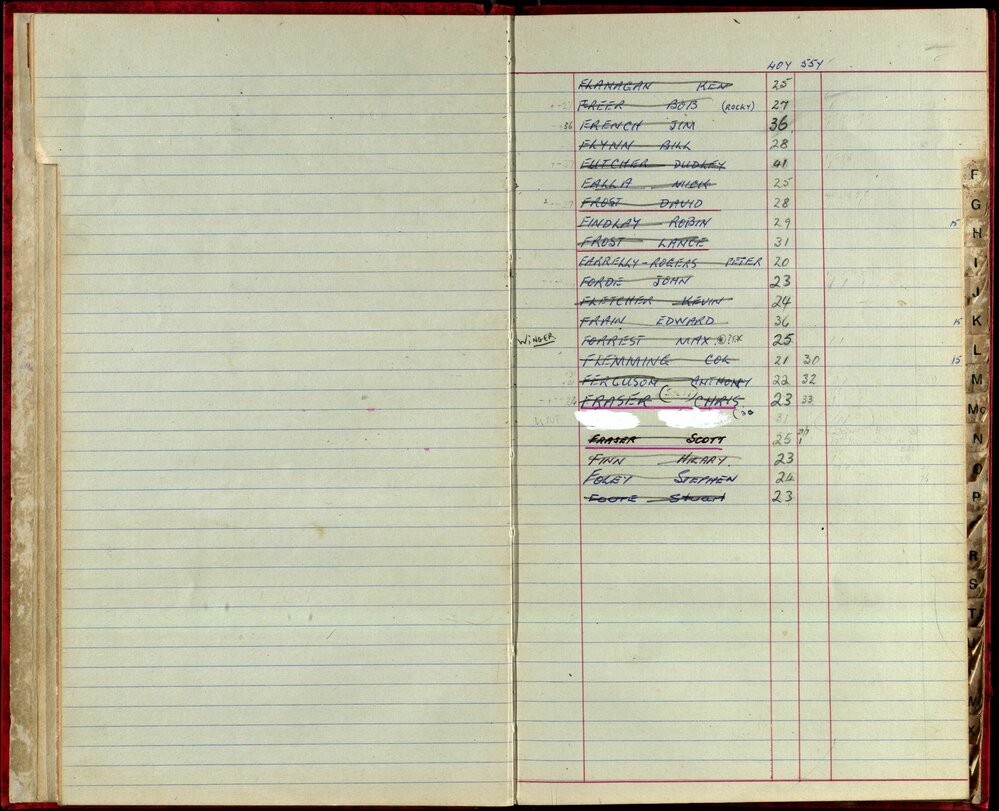 40Y 55Y
FLANAGAN KEN 25
FREER BOB (ROCKY) 27
36 FRENCH JIM 36
FLYNN BILL 28
FUTCHER DUDLEY 41
FALLA NICK 25
FROST DAVID 28
FINDLAY ROBIN 29 15
FROST LANCE 31
FARRELLY-ROGERS PETER 20
FORDE JOHN 23
FLETCHER KEVIN 24
FRAIN EDWARD 36 15
WINGER FORREST MAX 25
FLEMMING COL 21 30 15
FERGUSON ANTHONY 22 32
FRASER CHRIS 23 33
UNF 31
FRASER SCOTT 25
FINN HILARY 23
FOLEY STEPHEN 24
FOOTE STUART 23
F
G
H
I
J
K
L
M
Mc
N
O
P
R
S
T
W